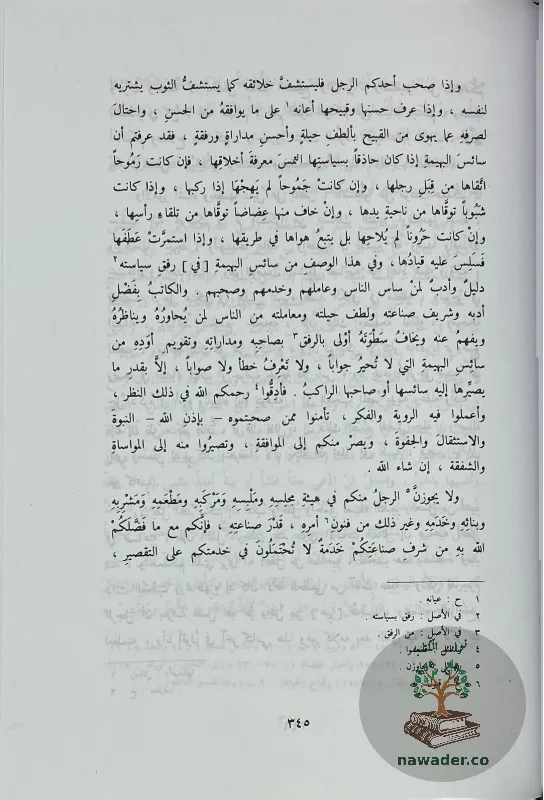 وإذا صحب أحدكم الرجل فليستشفَّ خلائقه كما يستشفُّ الثوب يشتريه
لنفسه ، وإذا عرف حسنها وقبيحها أعانه ١ على ما يوافقه من الحسن ، واحتال
لصرفهِ عما يهوى من القبيح بألطفِ حيلةٍ وأحسنِ مداراةٍ ورفقةٍ ، فقد عرفتم أن
سائسَ البهيمةِ إذا كان حاذقاً بسياستِها التمسَ معرفةَ أخلاقِها ، فإن كانت رَمُوحاً
اتَّقاها من قِبَلِ رجلها ، وإن كانتْ جَمُوحاً لم يَهِجْهَا إذا ركبها ، وإذا كانت
شَبُوباً توقَّاها من ناحيةِ يدها ، وإنْ خاف منها عِضاضاً توقَّاها من تلقاءِ رأسِها ،
وإنْ كانت حَرُوناً لم يُلاحِها بل يتبعُ هواها في طريقها ، وإذا استمرَّتْ عَطَفَها
فَسَلِسَ عليه قيادُها ، وفي هذا الوصفِ من سائسِ البهيمةِ [في] رفقِ سياسته ٢
دليلٌ وأدبٌ لمنْ ساس الناس وعاملهم وخدمهم وصحبهم . والكاتبُ بِفَضْلِ
أدبه وشريف صناعته ولطف حيلته ومعاملته من الناس لمن يُحاورُهُ ويناظرُهُ
ويفهمُ عنه ويخافُ سَطْوَتَهُ أوْلى بالرفق ٣ بصاحبِه ومداراتِهِ وتقويمِ أوَدِهِ من
سائِسِ البهيمةِ التي لا تُحيرُ جواباً ، ولا تَعْرِفُ خطأ ولا صواباً ، إلاَّ بقدرِ ما
يصيِّرها إليه سائسها أو صاحبها الراكبُ . فأدِقُّوا ٤ رحمكم الله في ذلك النظر ،
وأعملوا فيه الروية والفكر ، تأمنوا ممن صحبتموه – بإذنِ الله – النبوةَ
والاستثقالَ والجفوةَ ، ويصرْ منكم إلى الموافقةِ ، وتصيرُوا منه إلى المواساةِ
والشفقة ، إن شاء الله .
ولا يجوزنَّ ٥ الرجلُ منكم في هيئةِ مجلسِه ومَلْبِسِهِ ومَرْكَبِهِ ومَطْعَمِهِ وَمَشْرَبِهِ
وبنائِهِ وخَدَمِهِ وغير ذلك من فنونِ ٦ أمرِه ، قَدْرَ صناعتِهِ ، فإنَّكم مع ما فَضَّلَكُمْ
الله بِهِ من شرفِ صناعَتِكُمْ خَدَمَةٌ لا تُحْتَمَلُونَ في خدمتكم على التقصيرِ ،
١ ح : عيانه .
٢ في الأصل : رفق بسياسته .
٣ في الأصل : من الرفق .
٤
٥
٦
٣٤٥
nawader.co